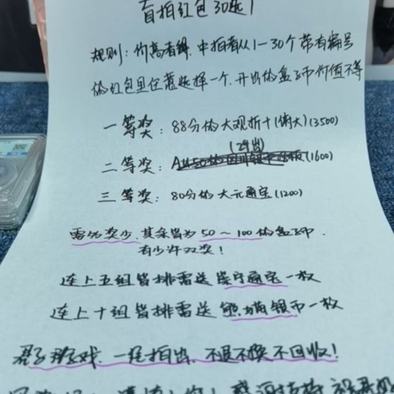 盲拍红包30选1
规则：价高者得，中拍者从1-30个带有编号
的红包里任意选择一个，开出的盒子币价值不等
一等奖：88分的大观折十（俏大）（3500）
（已出）
二等奖：（1600）
三等奖：80分的大元通宝（1200）
少，其余皆为50～100的盒子币
有少许双奖！
连上五组皆排需送崇宁通宝一枚
连上十组皆排需送熊猫银币一枚
君子游戏，一经拍出，不退不换不回收！